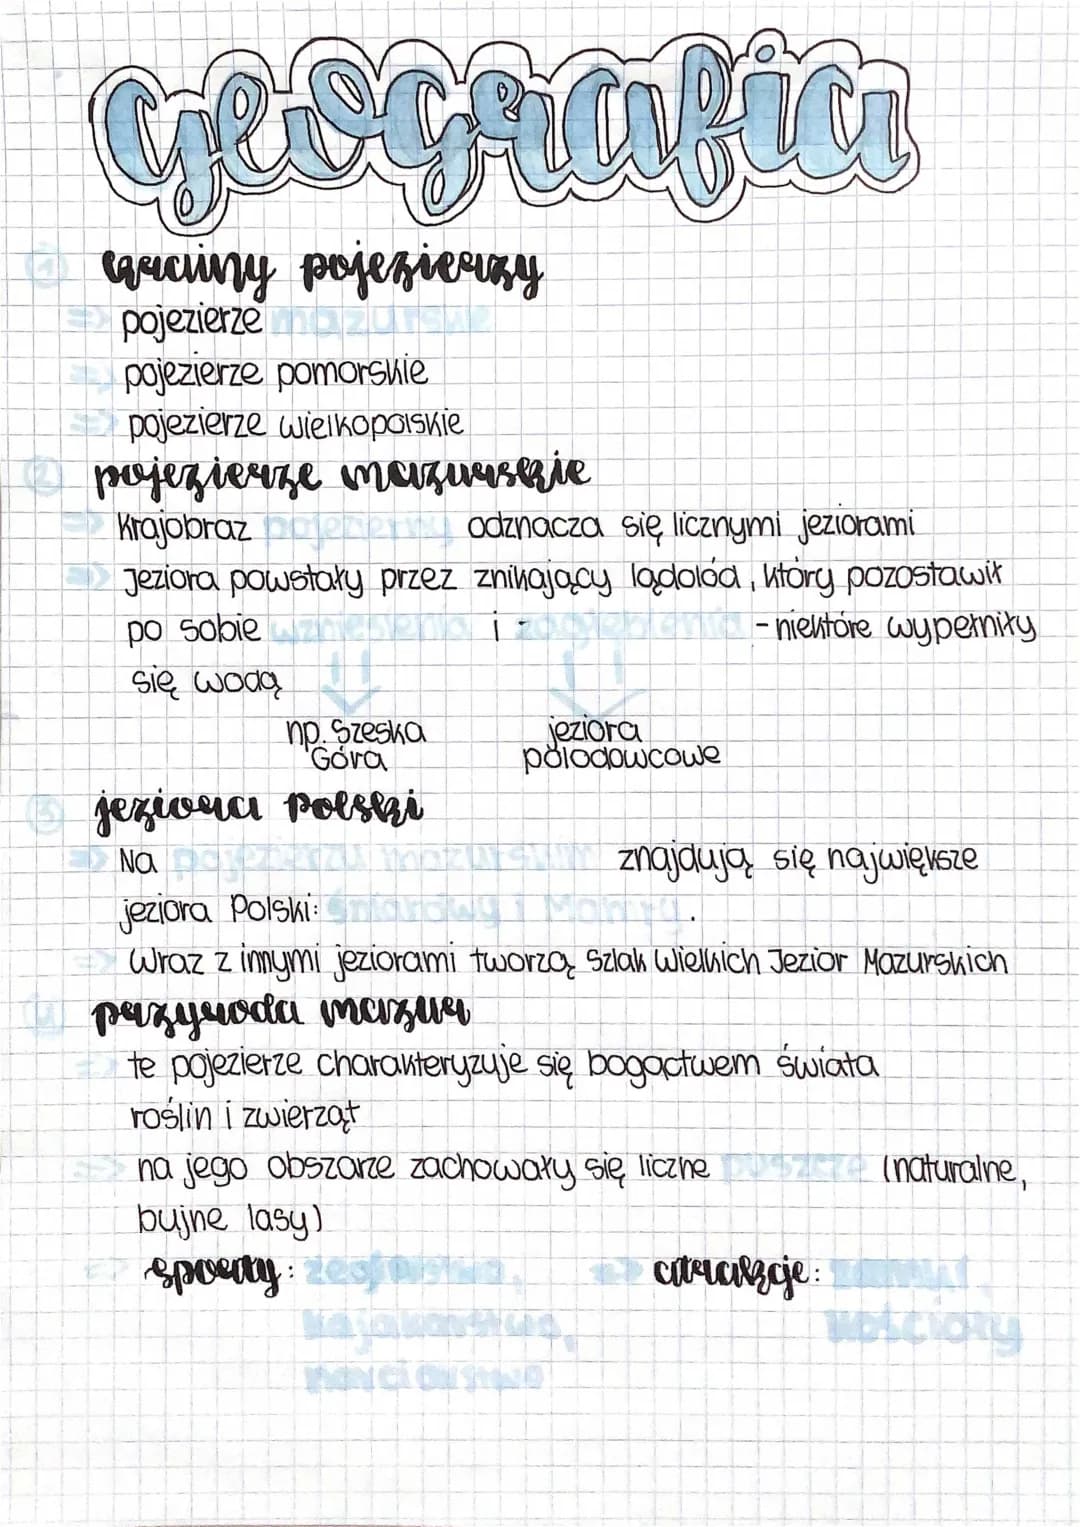 Geografia
1 krainy pojezierzy
=> pojezierze mazurskie
=> pojezierze pomorskie
=> pojezierze wielkopolskie
2 pojezierze mazurskie
=> Krajobraz pojezierny odznacza się licznymi jeziorami
=> Jeziora powstały przez znikający lądolód, który pozostawił
po sobie wzniesienia i zagłębienia - niektóre wypełniły
się wodą
np. Szeska jeziora
Góra polodowcowe
3 jeziora Polski
=> Na pojezierzu mazurskim znajdują się największe
jeziora Polski: Śniardwy i Mamry.
=> Wraz z innymi jeziorami tworzą Szlak Wielkich Jezior Mazurskich
4 przyroda mazur
=> te pojezierze charakteryzuje się bogactwem świata
roślin i zwierząt
=> na jego obszarze zachowały się liczne puszcze (naturalne,
bujne lasy)
=> sporty: żeglarstwo, => atrakcje: zamki,
kajakarstwo, kościoły
narciarstwo